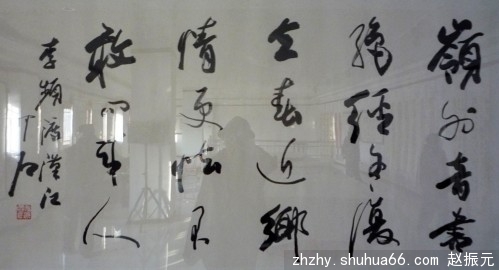 嶺外音書
絕經冬復
立春近鄉
情更怯不
敢問來人
李頻渡漢江
zhzhy.shuhua66.com 赵振元